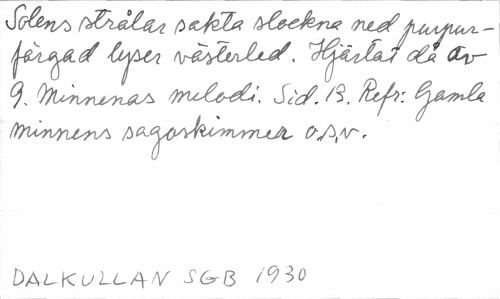 Solens strålar sakta slockna ned purpur-
färgad lyser västerled. Hjärtat då av
9. Minnenas melodi. Sid. 13. Refr: Gamla
minnens sagoskimmer o.s.v.
DALKULLAN SGB 1930